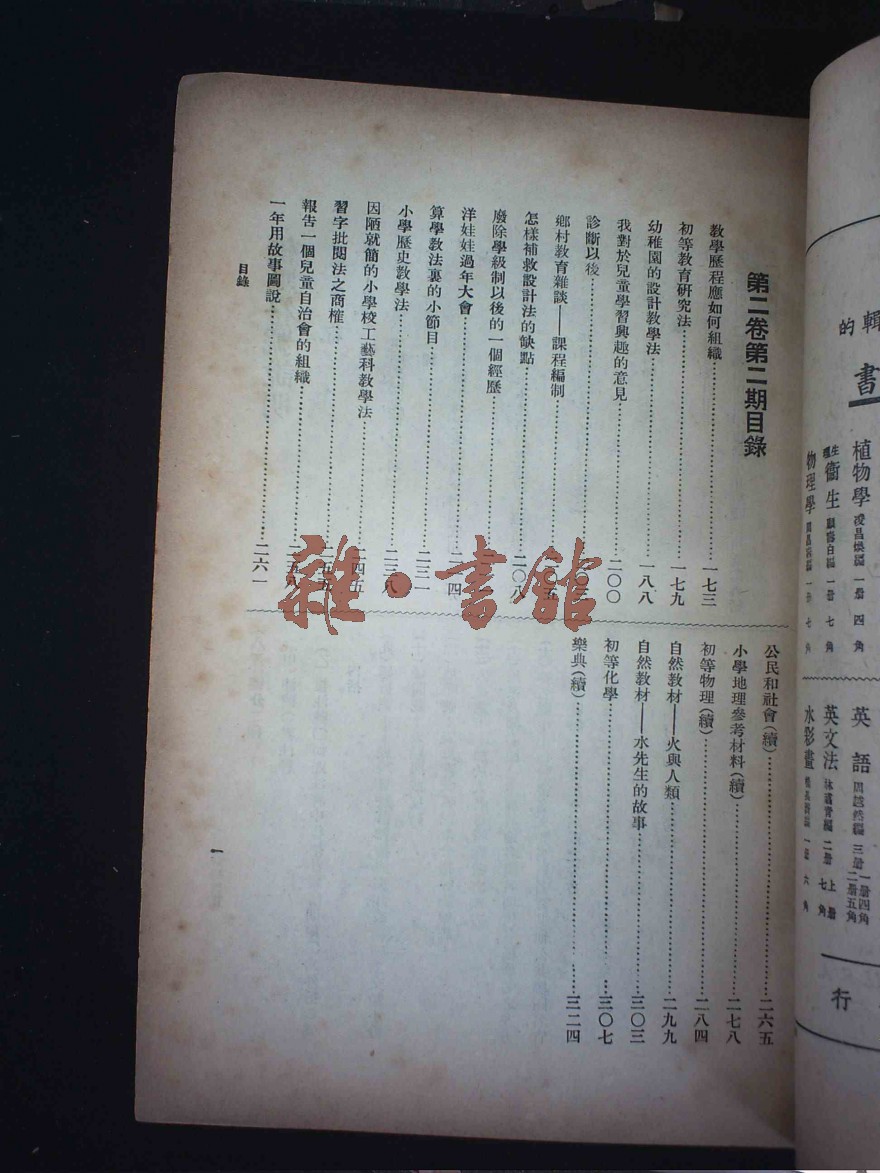 第二卷第二期目錄
教學歷程應如何組織……一七三
初等教育研究法……一七九
幼稚園的設計教學法……一八八
我對於兒童學習興趣的意見……二〇〇
診斷以後……二〇三
鄉村教育雜談——課程編制
怎樣補救設計法的缺點……二〇八
廢除學級制以後的一個經歷
洋娃娃過年大會
算學教法裏的小節目……二三一
小學歷史教學法……二三八
因陋就簡的小學校工藝科教學法……二四五
習字批閱法之商榷……二五五
報告一個兒童自治會的組織
一年用故事圖說……二六一
公民和社會(續)……二六五
小學地理參考材料(續)……二七八
初等物理(續)……二八四
自然教材——火與人類……二九九
自然教材——水先生的故事……三〇三
初等化學……三〇七
樂典(續)……三二四
目錄
一
雜·書館
輯的
書
植物學 凌昌煥編 一册 四角
生理衞生 顧壽白編 一册 七角
物理學 周昌壽編 一册 七角
英語 周越然編 三册 一册四角 二册五角
英文法 二册 上册 七角
水彩畫 一册 六角
行